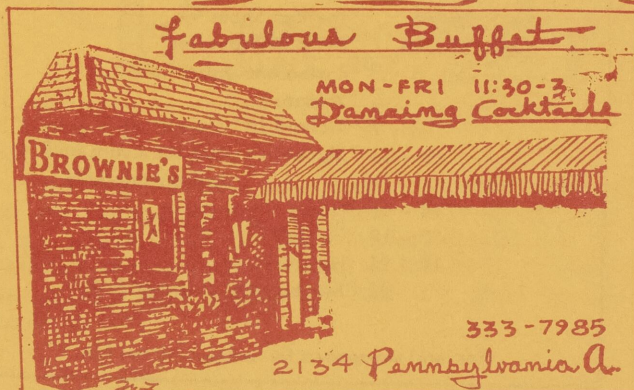 Fabulous Buffet
MON-FRI 11:30-3
Dancing Cocktails
BROWNIE'S
333-7985
2134 Pennsylvania A.